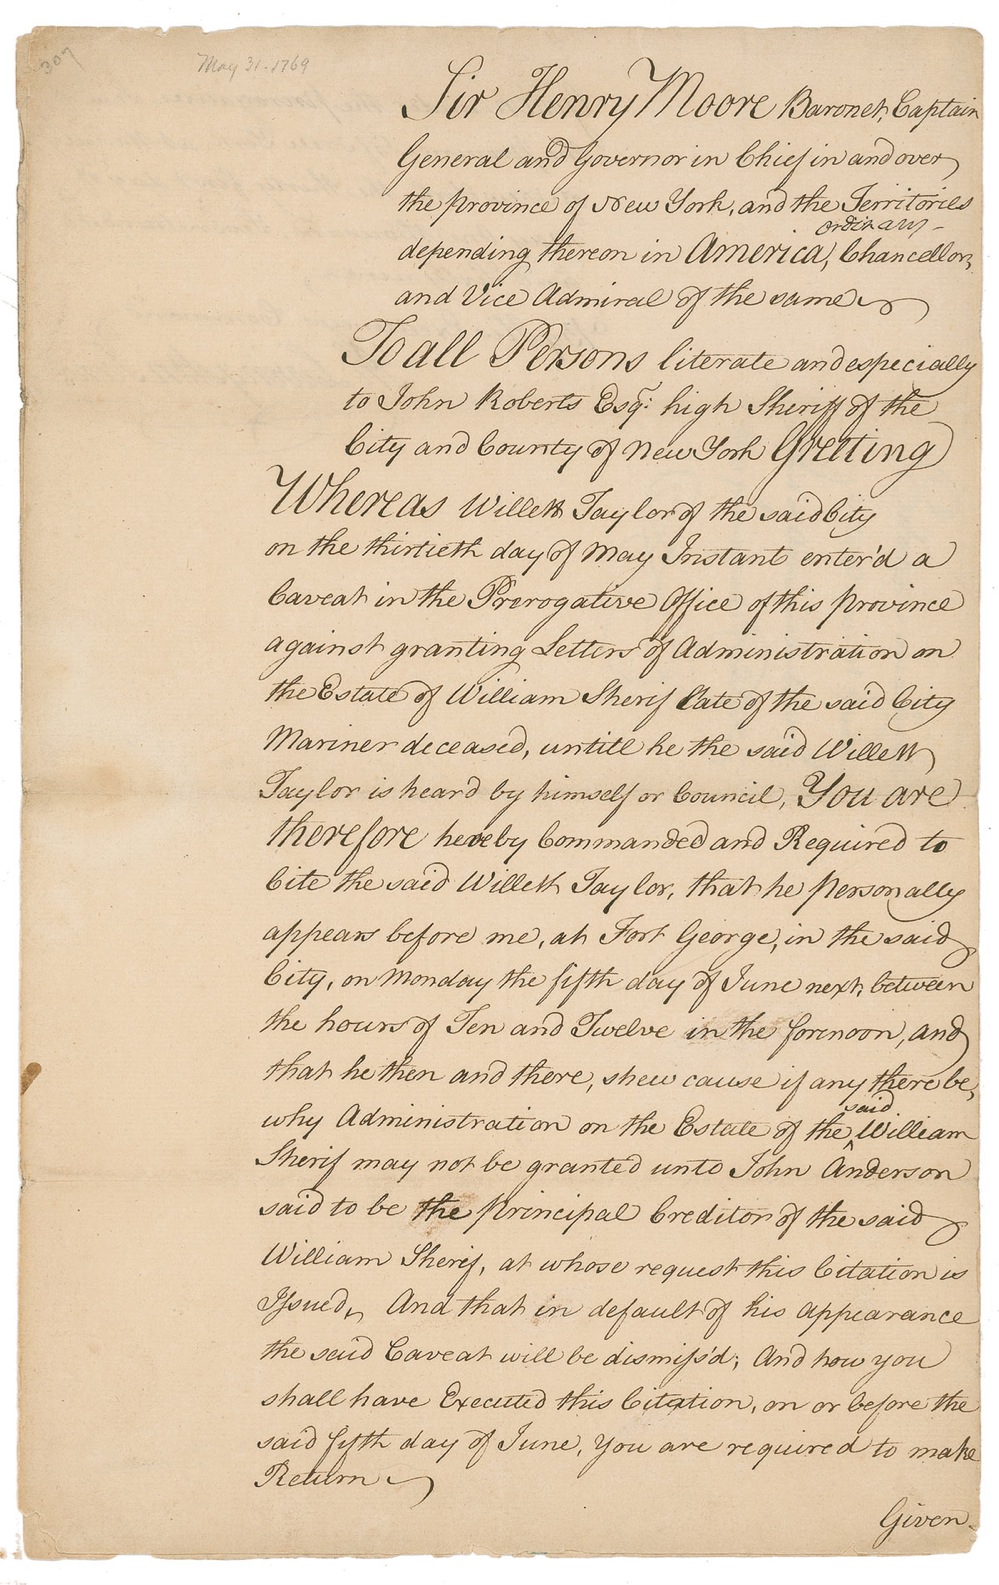 307
May 31-1769
Sir Henry Moore Baronet, Captain
General and Governor in Chief in and over
the province of New York, and the Territories
ordinary
depending thereon in America, Chancellor,
and Vice Admiral of the same
To all Persons literate and especially
to John Roberts Esqr. high Sheriff of the
City and County of New York Greeting
Whereas Willett Taylor of the said City
on the thirtieth day of May Instant enter'd a
Caveat in the Prerogative Office of this province
against granting Letters of Administration on
the Estate of William Sherif Late of the said City
Mariner deceased, untill he the said Willett
Taylor is heard by himself or Council, You are
therefore hereby Commanded and Required to
Cite the said Willett Taylor, that he personally
appears before me, at Fort George, in the said
City, on Monday the fifth day of June next, between
the hours of Ten and Twelve in the forenoon, and
that he then and there, shew cause if any there be,
said
why Administration on the Estate of the ‸ William
Sherif may not be granted unto John Anderson
said to be the principal Creditor of the said
William Sherif, at whose request this Citation is
Issued, And that in default of his appearance
the said Caveat will be dismiss'd; And how you
shall have Executed this Citation, on or before the
said fifth day of June, you are required to make
Return
Given